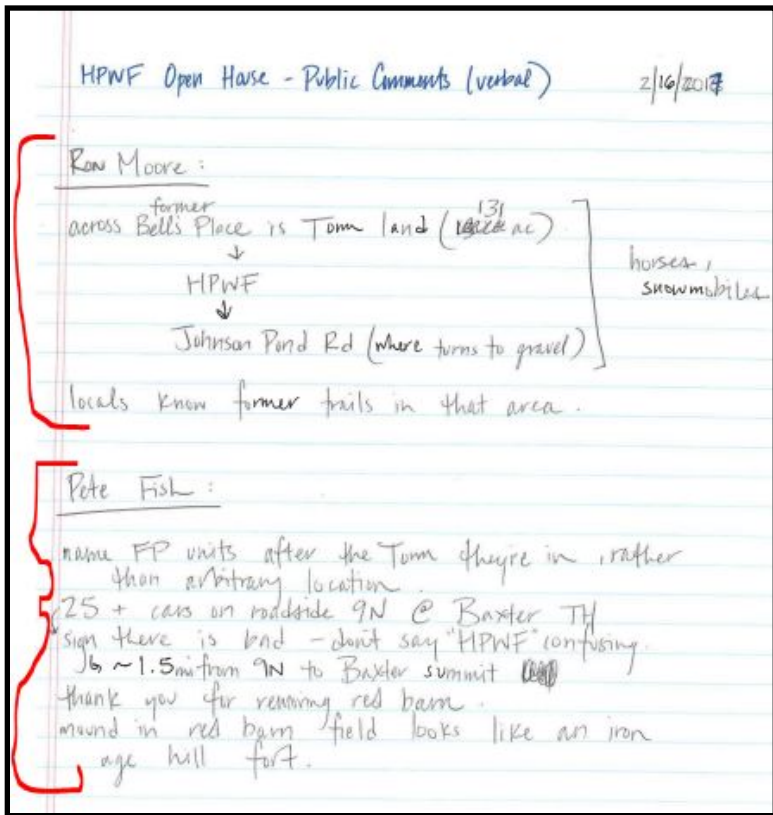 HPWF Open House - Public Comments (verbal) 2/16/2017
Ron Moore :
former
across Bell's Place is Town land (131 ac)
↓
HPWF
↓
Johnson Pond Rd (where turns to gravel)
horses,
snowmobiles
locals know former trails in that area.
Pete Fish :
name FP units after the Town they're in, rather
than arbitrary location.
25 + cars on roadside 9N @ Baxter TH
sign there is bad - don't say "HPWF" confusing.
~1.5mi from 9N to Baxter summit
thank you for removing red barn.
mound in red barn field looks like an iron
age hill fort.